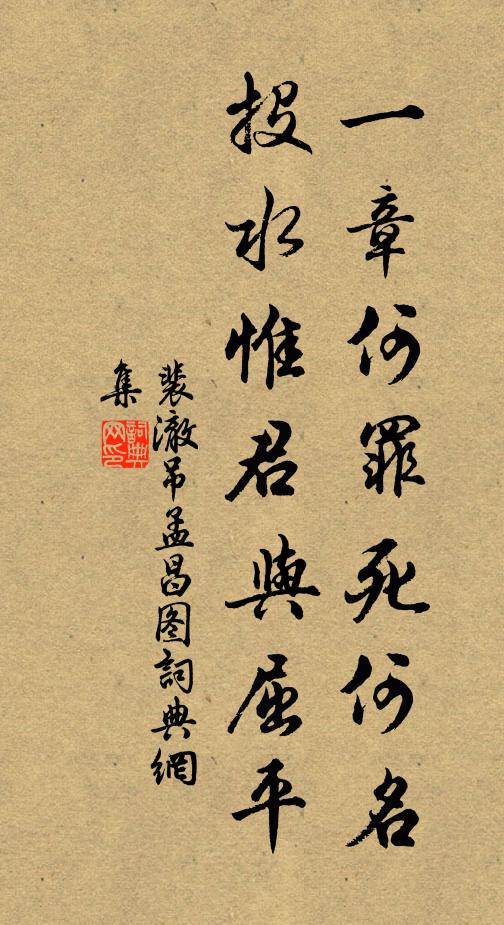 一章何罪死何名
投水惟君與屈平
裴澈吊孟昌图詞典網
集
詞典
网印